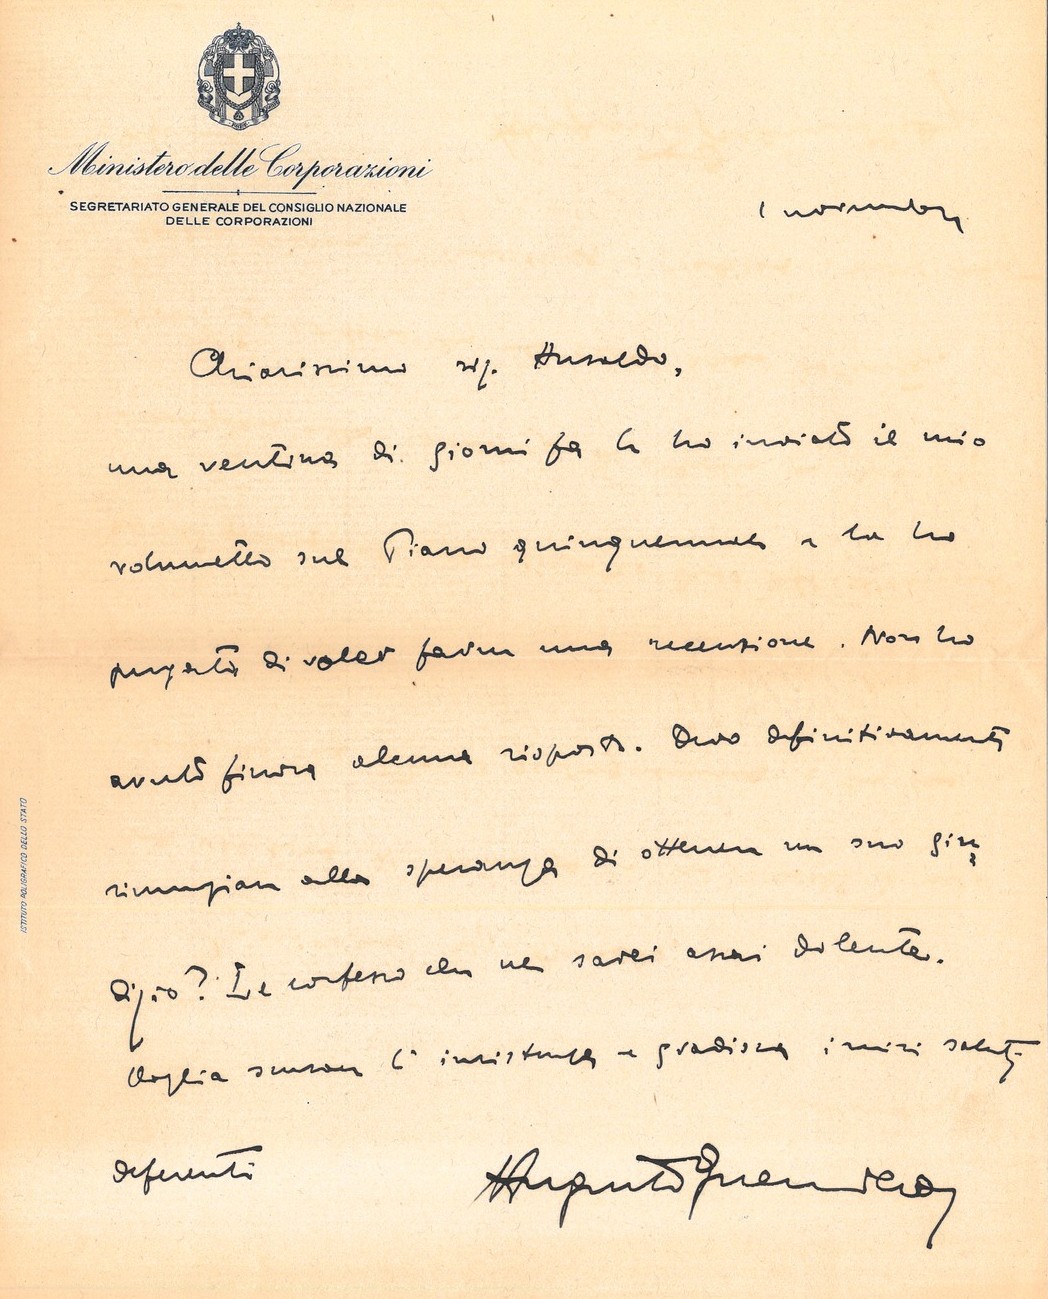 Ministero delle Corporazioni
SEGRETARIATO GENERALE DEL CONSIGLIO NAZIONALE
DELLE CORPORAZIONI
1 novembre
Chiarissimo sig. Ansaldo,
una ventina di giorni fa le ho inviato il mio
volumetto sul Piano quinquennale e la ho
pregata di voler farne una recensione. Non ho
avuto finora alcuna risposta. Devo definitivamente
rinunziare alla speranza di ottenere un suo giu=
dizio? Le confesso che ne sarei assai dolente.
Voglia scusare l'insistenza e gradisca i miei saluti
deferenti
Augusto
ISTITUTO POLIGRAFICO DELLO STATO